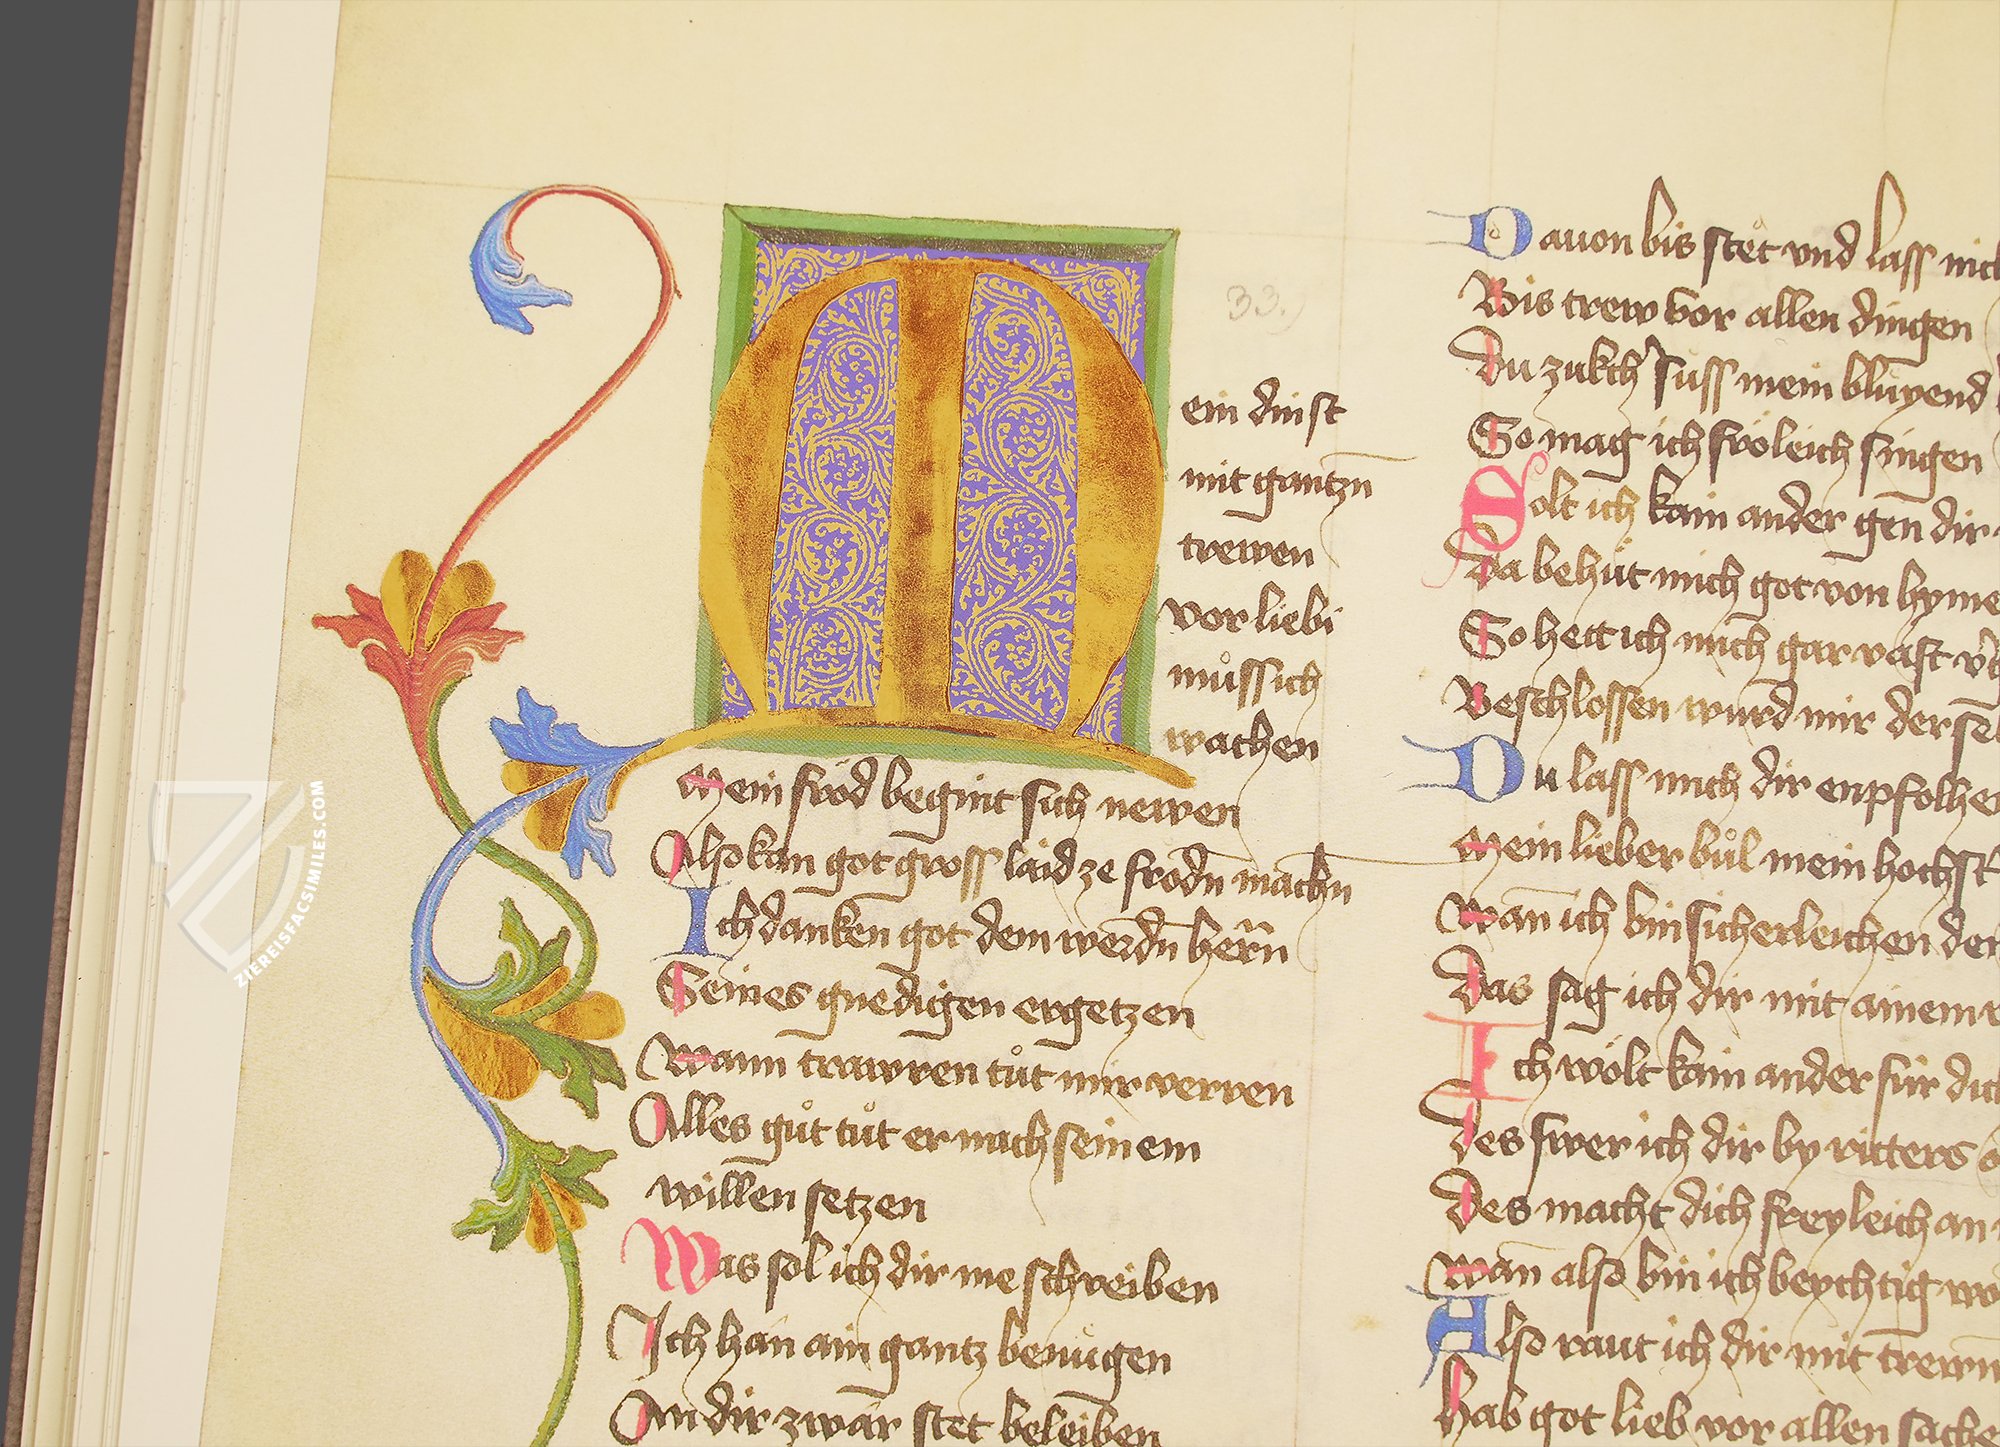 33.
Mein dinst
mit gantzn̄
trewen
vor liebi
můss ich
wachen
Mein fröd begint sich newen
Also kan got gross laid ze frödn̄ machn̄
Ich danken got dem werdn̄ herñ
Seines gnedigen ergetzen
Wann trawren tůt mir verren
Alles gůt tůt er nach seinem
willen setzen
Was sol ich dir me schreiben
Ich han ain gantz benügen
An dir zwar stet beleiben
Dauon bis stet vnd lass
Bis trew vor allen dingen
Du zukch süss mein blüyend
So mag ich fröleich singen
Solt ich kain ander gen dir
Da behüt mich got von
So hett ich mich gar vast
Beschlossen wurd mir der
Du lass mich dir enpfolhen
Mein lieber bůl mein höchst
Wan̄ ich bin sicherleichen
Das sag ich dir mit ainem
Ich wölt kain ander für dich
Des swer ich dir by ritters
Des macht dich freyleich an
Wan̄ also bin ich beychtig
Also raut ich dir mit
Hab got lieb vor allen
ZIEREISFACSIMILES.COM